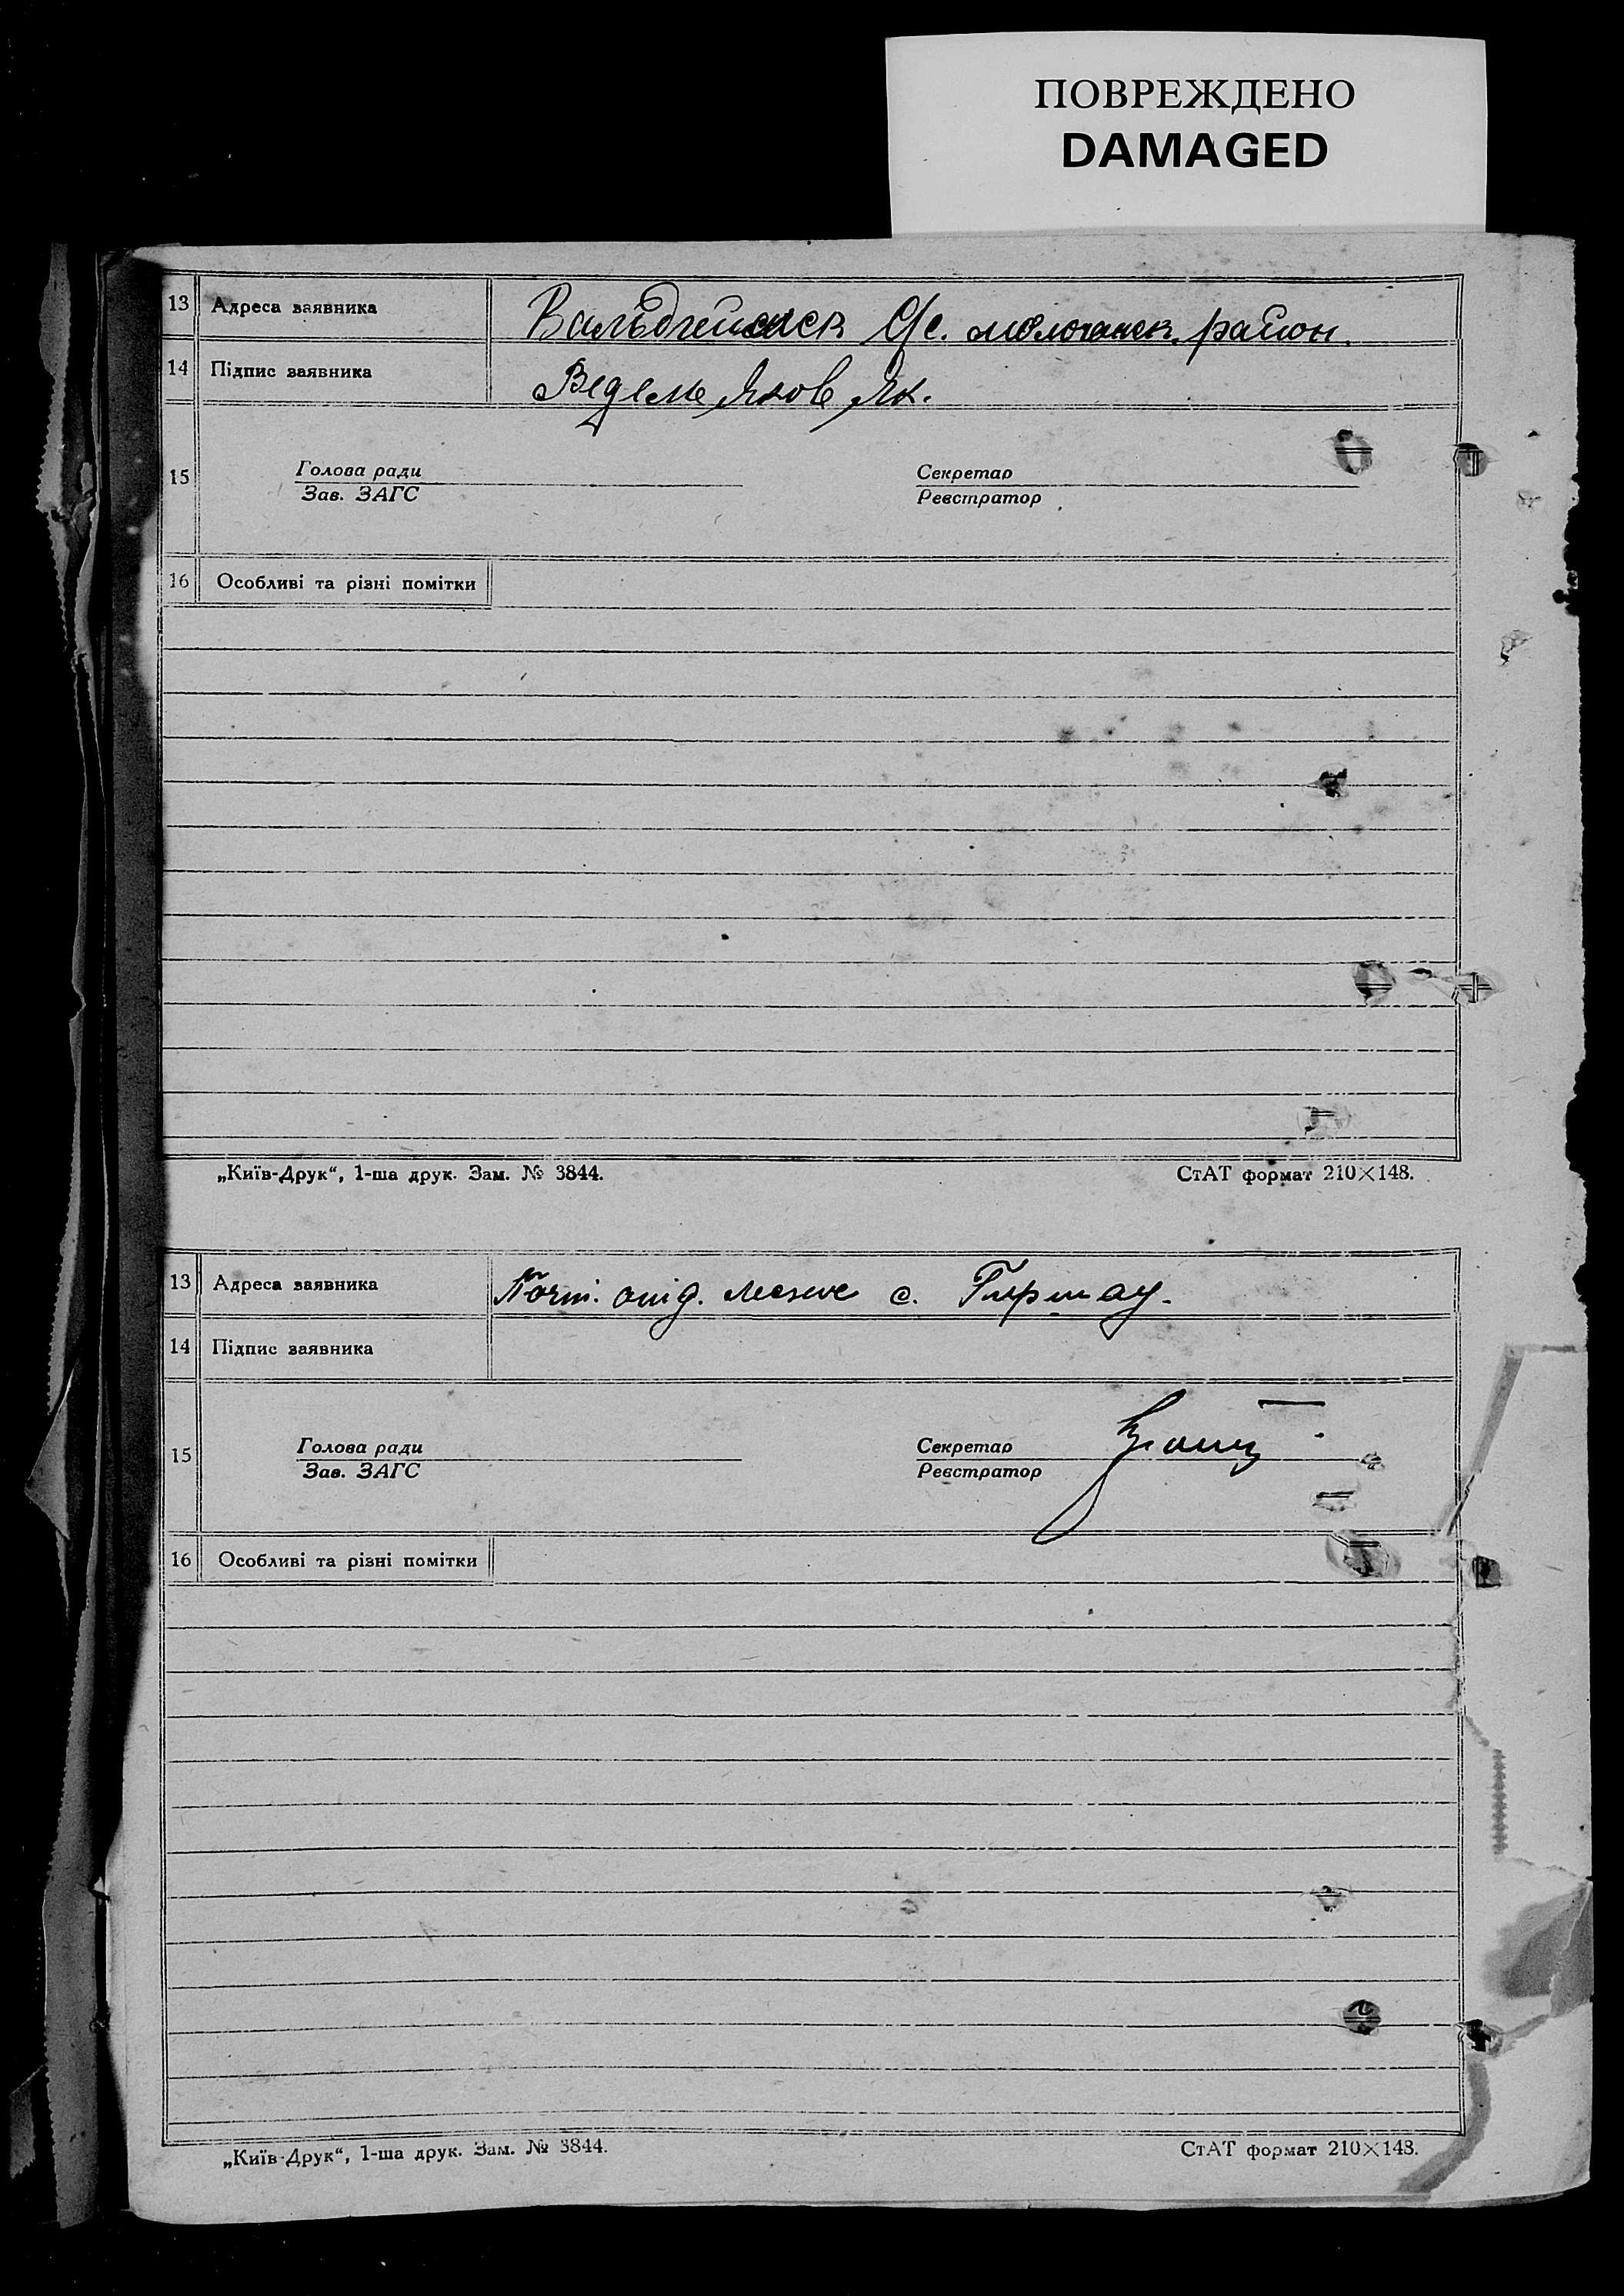 ПОВРЕЖДЕНО
DAMAGED
13 Адреса заявника с/с. молочанск. район.
14 Підпис заявника Яков Як.
15 Голова ради Секретар
Зав. ЗАГС Реєстратор
16 Особливі та різні помітки
„Київ-Друк“, 1-ша друк. Зам. № 3844. СтАТ формат 210×148.
13 Адреса заявника с. Гиршау.
14 Підпис заявника
15 Голова ради Секретар
Зав. ЗАГС Реєстратор
16 Особливі та різні помітки
„Київ-Друк“, 1-ша друк. Зам. № 3844. СтАТ формат 210×148.